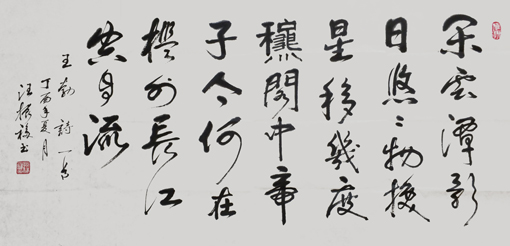 闲云潭影
日悠々物換
星移幾度
龝閣中帝
子今何在
檻外長江
空自流
王勃詩一首
丁酉年夏月
汪振书